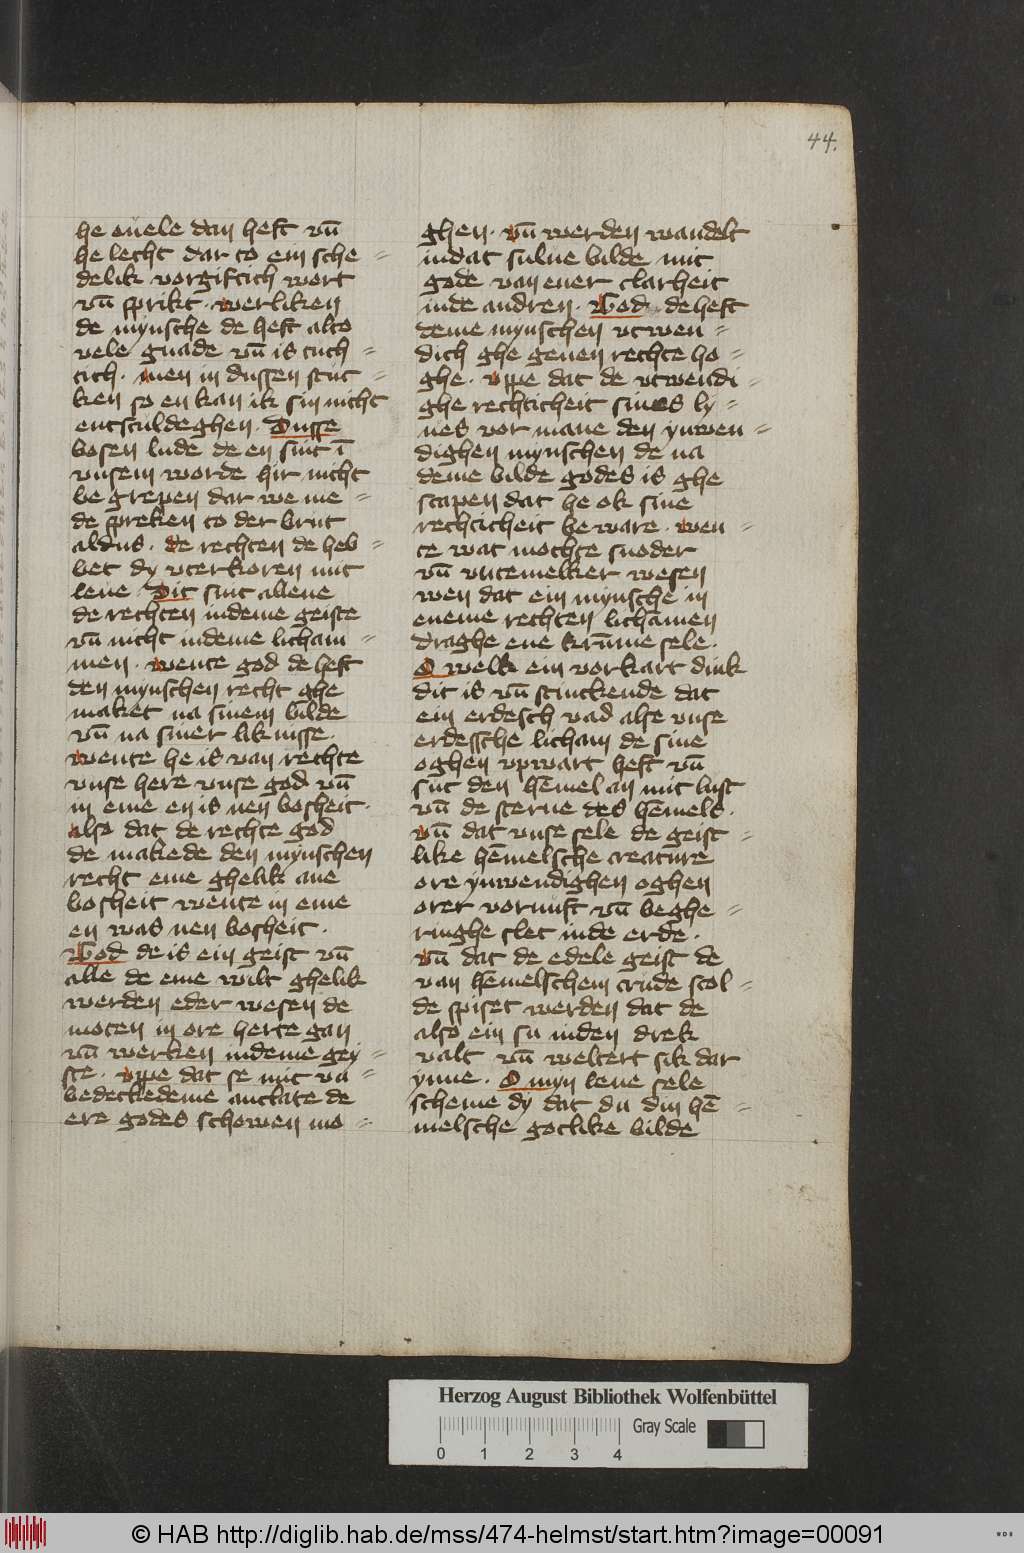 44.
he ouele dan heft vn̄
he lecht dar to ein sche =
delik vorgiftich wort
vn̄ sprikt · werliken
de mynsche de heft alto
vele gnade vn̄ is tuch =
tich · men in dussen stuc =
ken so en kan ik sin nicht
entsculdeghen · Dusse
bosen lude de en sint ī
vnsem worde hir nicht
be grepen dar we me =
de spreken to der brut
aldus · de rechten de heb =
bet dy vterkoren mit
leue Dit sint allene
de rechten indeme geiste
vn̄ nicht indeme licham =
men · wente god de heft
den mynschen recht ghe
maket na sinem bilde
vn̄ na siner liknisse ·
wente he is van rechte
vnse here vnse god vn̄
in eme en is nen bosheit ·
also dat de rechte god
de makede den mynschen
recht eme ghelik ane
bosheit wente in eme
en was nen bosheit ·
God de is ein geist vn̄
alle de eme wilt ghelik
werden eder wesen de
moten in ore herte gan
vn̄ werken indeme gey =
ste · vppe dat se mit vn =
bedeckedeme antlate de
ere godes schowen mo =
ghen · vn̄ werden wandelt
indat sulue bilde mit
gode van ener clarheit
inde andren · God de heft
deme mynschen vtwen =
dich ghe geuen rechte ho =
ghe · vppe dat de vtwendi =
ghe rechticheit sines ly =
ues vor mane den ynwen =
dighen mynschen de na
deme bilde godes is ghe
scapen dat he ok sine
rechticheit be ware · wen =
te wat mochte snoder
vn̄ vntemelker wesen
wen dat ein mynsche in
eneme rechten lichamen
draghe ene krūme sele ·
O welk ein vorkart dink
dit is vn̄ stinckende dat
ein erdesch vad alse vnse
erdessche licham de sine
oghen vpwart heft vn̄
sut den hēmel an mit lust
vn̄ de sterne des hēmels ·
vn̄ dat vnse sele de geist =
like hēmelsche creature
ore ynwendighen oghen
orer vornuft vn̄ beghe =
ringhe slet inde erde ·
vn̄ dat de edele geist de
van hēmelschem crude scol =
de spiset werden dat de
also ein su inden drek
valt vn̄ weltert sik dar
ynne · O myn leue sele
scheme dy dat du din hē =
melsche gotlike bilde
Herzog August Bibliothek Wolfenbüttel
Gray Scale
0 1 2 3 4
© HAB http://diglib.hab.de/mss/474-helmst/start.htm?image=00091
WDB